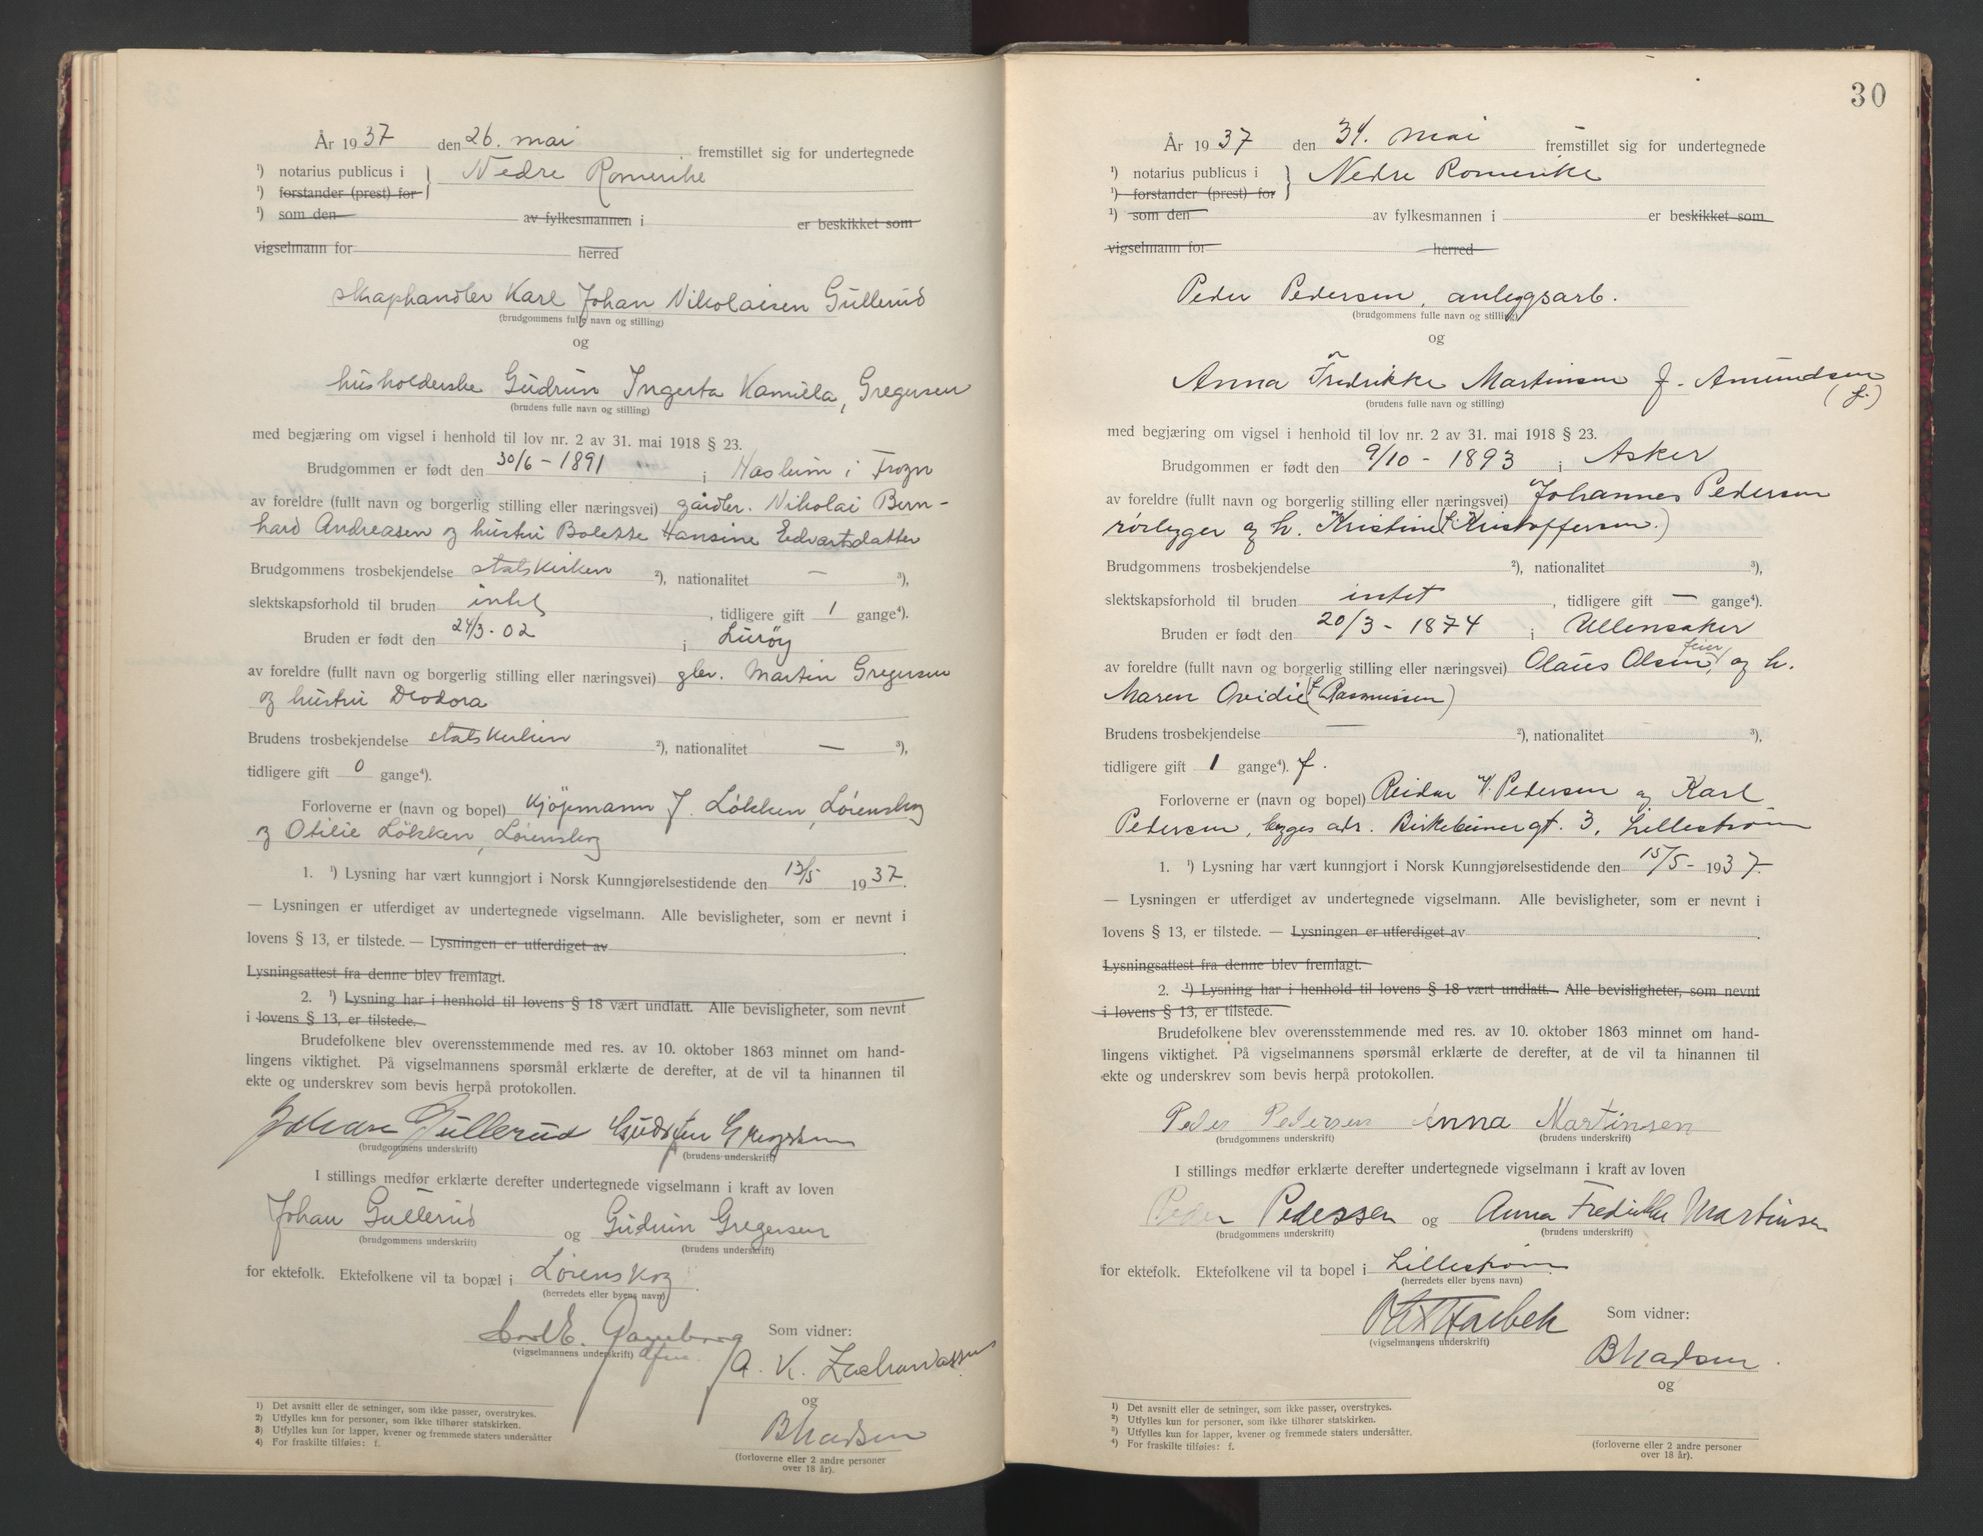 År 1937 den 26. mai fremstillet sig for undertegnede
¹) notarius publicus i } Nedre Romerike
¹) forstander (prest) for
¹) som den av fylkesmannen i er beskikket som
vigselmann for herred
skraphandler Karl Johan Nikolaisen Gullerud
(brudgommens fulle navn og stilling)
og
husholderske Gudrun Ingerta Kamilla, Gregersen
(brudens fulle navn og stilling)
med begjæring om vigsel i henhold til lov nr. 2 av 31. mai 1918 § 23.
Brudgommen er født den 30/6 - 1891 i Haslum i Frogn
av foreldre (fullt navn og borgerlig stilling eller næringsvei) gårdbr. Nikolai Bern-
hard Andreasen og hustru Bolette Hansine Edvartsdatter
Brudgommens trosbekjendelse statskirken ²), nationalitet — ³),
slektskapsforhold til bruden intet, tidligere gift 1 gange⁴).
Bruden er født den 24/3 - 02 i Lurøy
av foreldre (fullt navn og borgerlig stilling eller næringsvei) gbr. Martin Gregersen
og hustru Deodora
Brudens trosbekjendelse statskirken ²), nationalitet — ³),
tidligere gift 0 gange⁴).
Forloverne er (navn og bopel) Kjøpmann J. Løkken, Lørenskog
og Otilie Løkken, Lørenskog
1. ¹) Lysning har vært kunngjort i Norsk Kunngjørelsestidende den 13/5 1937.
— Lysningen er utferdiget av undertegnede vigselmann. Alle bevisligheter, som er nevnt i
lovens § 13, er tilstede. — Lysningen er utferdiget av
Lysningsattest fra denne blev fremlagt.
2. ¹) Lysning har i henhold til lovens § 18 vært undlatt. Alle bevisligheter, som nevnt
i lovens § 13, er tilstede.
Brudefolkene blev overensstemmende med res. av 10. oktober 1863 minnet om hand-
lingens viktighet. På vigselmannens spørsmål erklærte de derefter, at de vil ta hinannen til
ekte og underskrev som bevis herpå protokollen.
Johan Gullerud Gudrun Gregersen
(brudgommens underskrift) (brudens underskrift)
I stillings medfør erklærte derefter undertegnede vigselmann i kraft av loven
Johan Gullerud og Gudrun Gregersen
(brudgommens underskrift) (brudens underskrift)
for ektefolk. Ektefolkene vil ta bopæl i Lørenskog
(herredets eller byens navn)
Carl E. Som vidner:
(vigselmannens underskrift)
A. K. Zachariassen
og
B Madsen
(forloverne eller 2 andre personer
over 18 år).
1) Det avsnitt eller de setninger, som ikke passer, overstrykes.
2) Utfylles kun for personer, som ikke tilhører statskirken.
3) Utfylles kun for lapper, kvener og fremmede staters undersåtter
4) For fraskilte tilføies: f.
30
År 1937 den 31. mai fremstillet sig for undertegnede
¹) notarius publicus i } Nedre Romerike
¹) forstander (prest) for
¹) som den av fylkesmannen i er beskikket som
vigselmann for herred
Peder Pedersen, anleggsarb.
(brudgommens fulle navn og stilling)
og
Anna Fredrikke Martinsen f. Amundsen
(f.)
(brudens fulle navn og stilling)
med begjæring om vigsel i henhold til lov nr. 2 av 31. mai 1918 § 23.
Brudgommen er født den 9/10 - 1893 i Asker
av foreldre (fullt navn og borgerlig stilling eller næringsvei) Johannes Pedersen
rørlegger og h. Kristine (f. Kristoffersen.)
Brudgommens trosbekjendelse ²), nationalitet ³),
slektskapsforhold til bruden intet, tidligere gift — gange⁴).
Bruden er født den 20/3 - 1874 i Ullensaker
av foreldre (fullt navn og borgerlig stilling eller næringsvei) Olaus Olsen, feier, og h.
Maren Ovidie (f. Rasmussen)
Brudens trosbekjendelse — ²), nationalitet ³),
tidligere gift 1 gange⁴). f.
Forloverne er (navn og bopel) Reidar V. Pedersen og Karl
Pedersen, begges adr. Birkebeinergt. 3, Lillestrøm
1. ¹) Lysning har vært kunngjort i Norsk Kunngjørelsestidende den 15/5 - 1937.
— Lysningen er utferdiget av undertegnede vigselmann. Alle bevisligheter, som er nevnt i
lovens § 13, er tilstede. — Lysningen er utferdiget av
Lysningsattest fra denne blev fremlagt.
2. ¹) Lysning har i henhold til lovens § 18 vært undlatt. Alle bevisligheter, som nevnt
i lovens § 13, er tilstede.
Brudefolkene blev overensstemmende med res. av 10. oktober 1863 minnet om hand-
lingens viktighet. På vigselmannens spørsmål erklærte de derefter, at de vil ta hinannen til
ekte og underskrev som bevis herpå protokollen.
Peder Pedersen Anna Martinsen
(brudgommens underskrift) (brudens underskrift)
I stillings medfør erklærte derefter undertegnede vigselmann i kraft av loven
Peder Pedersen og Anna Fredrikke Martinsen
(brudgommens underskrift) (brudens underskrift)
for ektefolk. Ektefolkene vil ta bopel i Lillestrøm
(herredets eller byens navn)
Som vidner:
(vigselmannens underskrift)
B Madsen.
og
(forloverne eller 2 andre personer
over 18 år).
¹) Det avsnitt eller de setninger, som ikke passer, overstrykes.
²) Utfylles kun for personer, som ikke tilhører statskirken.
³) Utfylles kun for lapper, kvener og fremmede staters undersåtter.
⁴) For fraskilte tilføies: f.